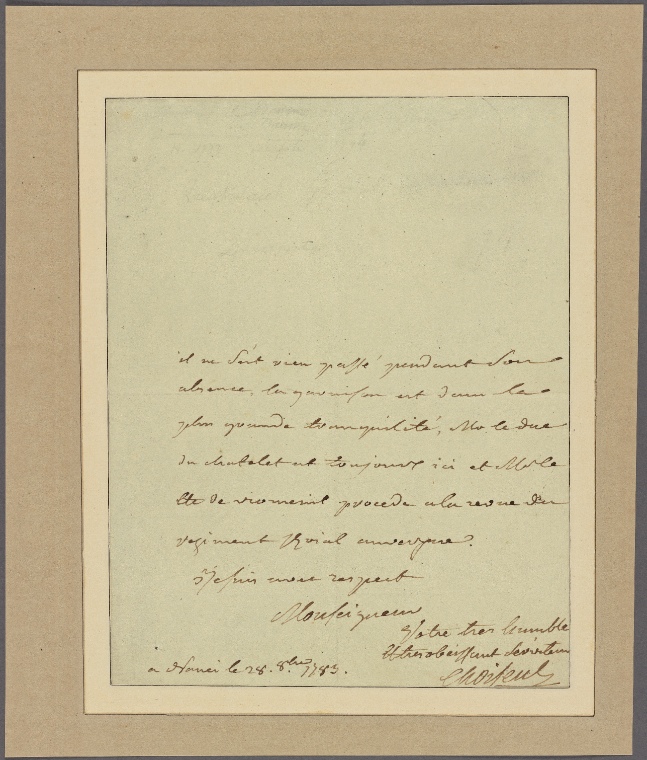 il ne s'est rien passé pendant son
absence, la garnison est dans la
plus grande tranquilité, Mr le duc
du chatelet est toujours ici et Mr le
cte de viomenil procede a la revue du
regiment Roial auvergne.
Je suis avec respect
Monseigneur
Votre tres humble
Et tres obeissant serviteur
Choiseul
a Nanci le 28. 8bre 1783.